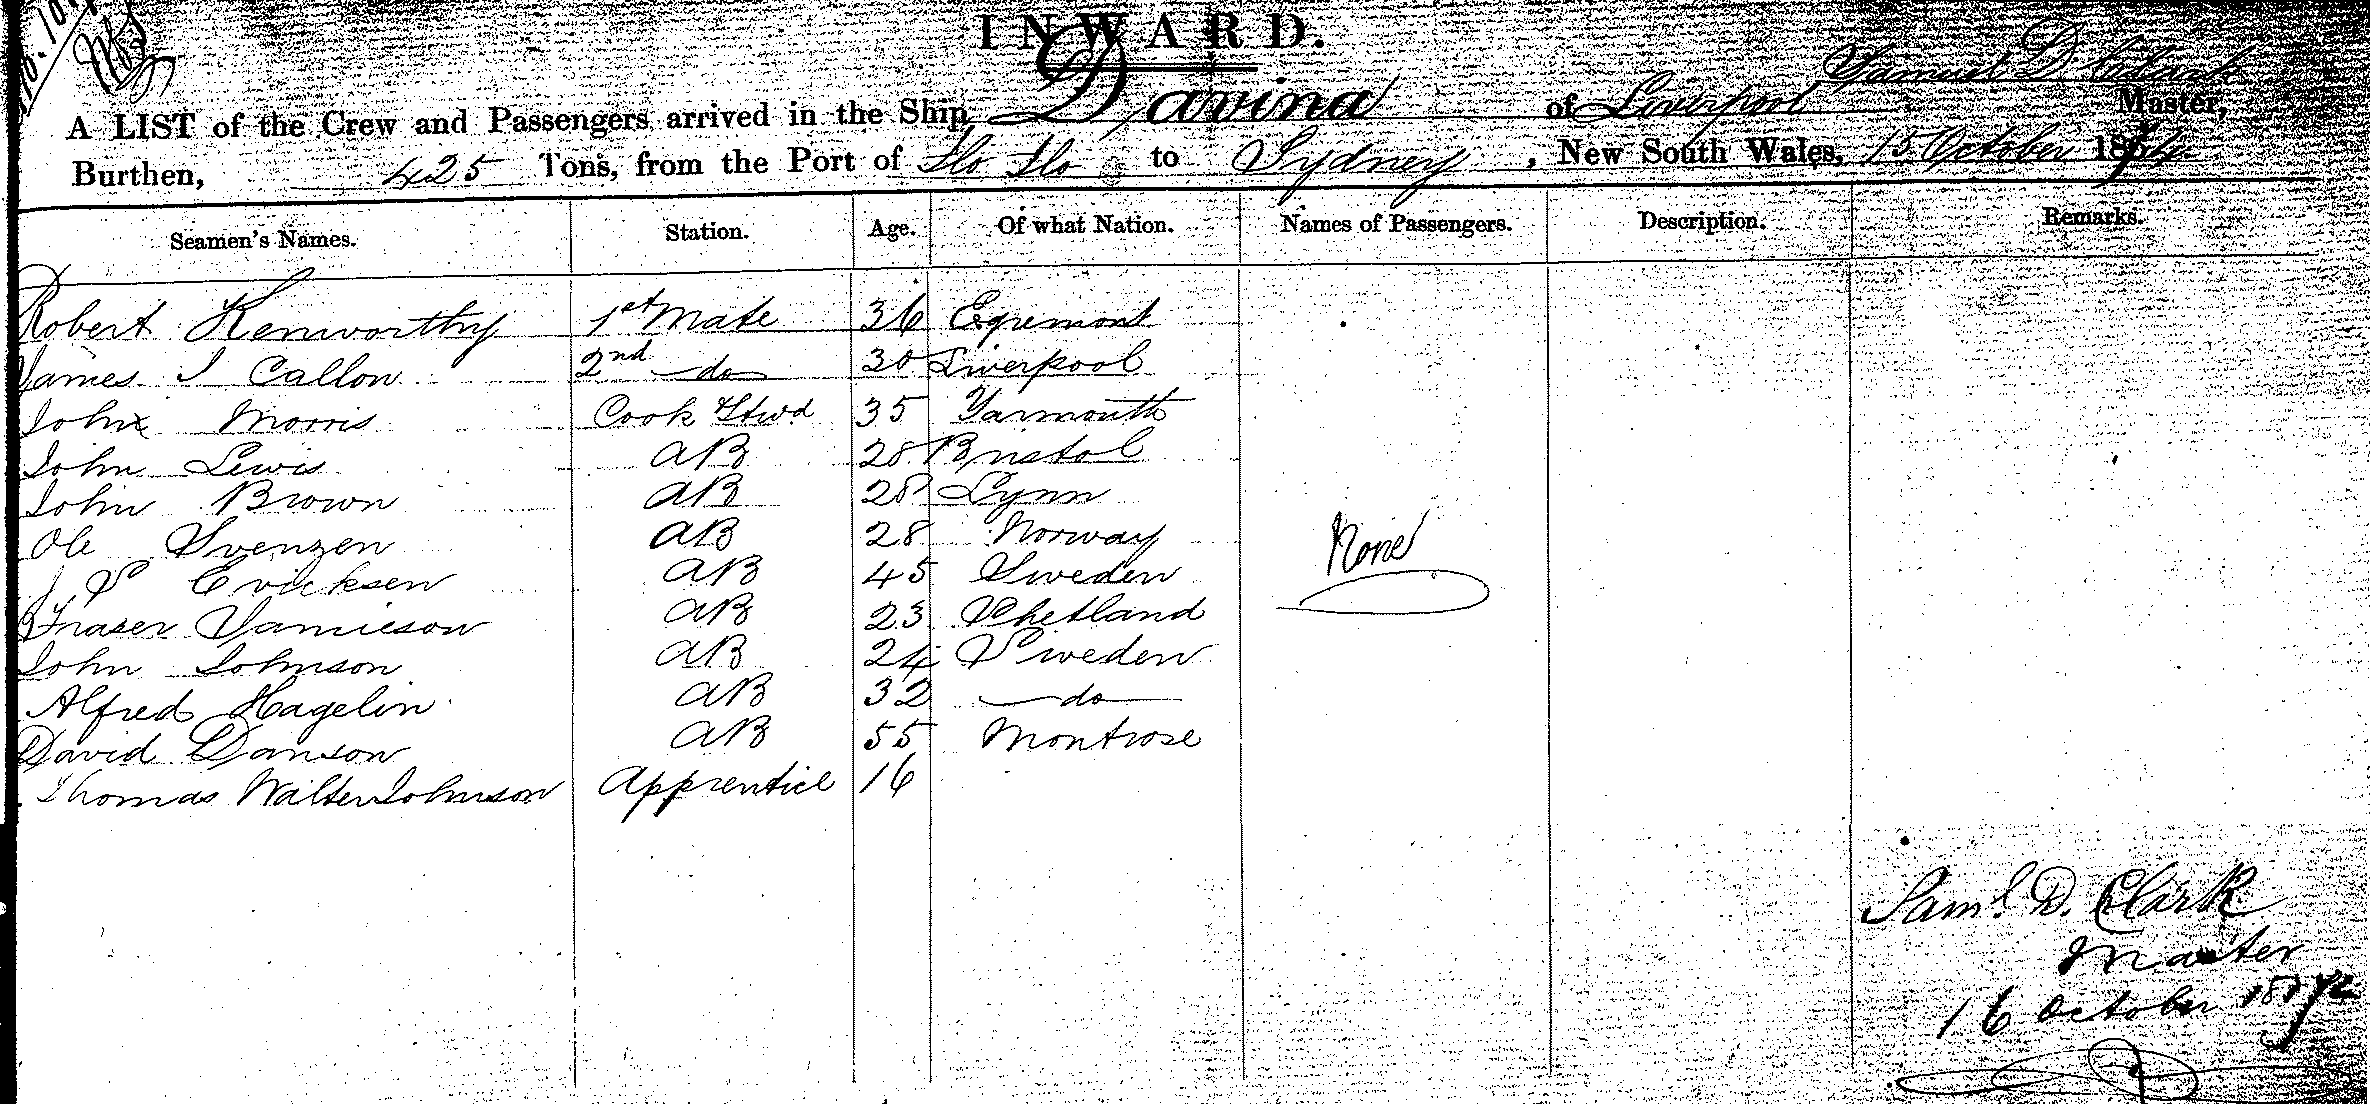 INWARD.
Samuel D. Clark
A LIST of the Crew and Passengers arrived in the Ship Davina of Liverpool Master,
Burthen, 425 Tons, from the Port of Ilo Ilo to Sydney, New South Wales, 15 October
Seamen's Names. Station. Age. Of what Nation. Names of Passengers. Description. Remarks.
Robert Kenworthy 1st Mate 36 Egremont
James J Callon 2nd do 30 Liverpool
John Morris Cook & Stwd 35 Yarmouth
John Lewis AB 28 Bristol
John Brown AB 28 Lynn
Ole Svenzen AB 28 Norway
None
J P Ericksen AB 45 Sweden
Fraser Jamieson AB 23 Shetland
John Johnson AB 24 Sweden
Alfred Hagelin AB 32 do
David Danson AB 55 Montrose
Thomas Walter Johnson Apprentice 16
Saml. D. Clark
Master
16 October